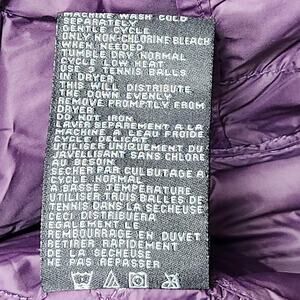 MACHINE WASH COLD
SEPARATELY
GENTLE CYCLE
ONLY NON-CHLORINE BLEACH
WHEN NEEDED
TUMBLE DRY NORMAL
CYCLE LOW HEAT
USE 3 TENNIS BALLS
IN DRYER
THIS WILL DISTRIBUTE
THE DOWN EVENLY
REMOVE PROMPTLY FROM
DRYER
DO NOT IRON
LAVER SEPAREMENT A LA
MACHINE A LEAU FROIDE
CYCLE DELICAT
UTILISER UNIQUEMENT DU
JAVELLISANT SANS CHLORE
AU BESOIN
SECHER PAR CULBUTAGE A
CYCLE NORMAL
A BASSE TEMPERATURE
UTILISER TROIS BALLES DE
TENNIS DANS LA SECHEUSE
CECI DISTRIBUERA
EGALEMENT LE
REMBOURRAGE EN DUVET
RETIRER RAPIDEMENT
DE LA SECHEUSE
NE PAS REPASSER